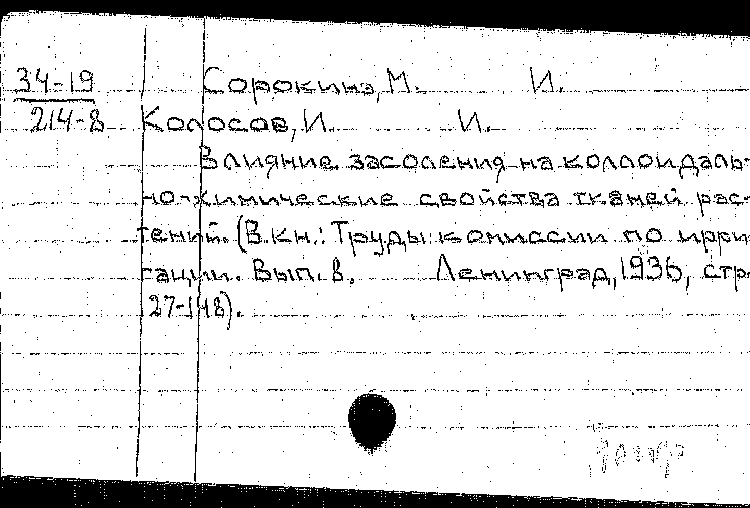 34-19
214-8
Сорокина, М. И.
Колосов, И. И.
Влияние засоления на коллоидаль-
но-химические свойства тканей рас-
тений. (В кн.: Труды комиссии по ирри-
гации. Вып. 8. Ленинград, 1936, стр.
27-148).